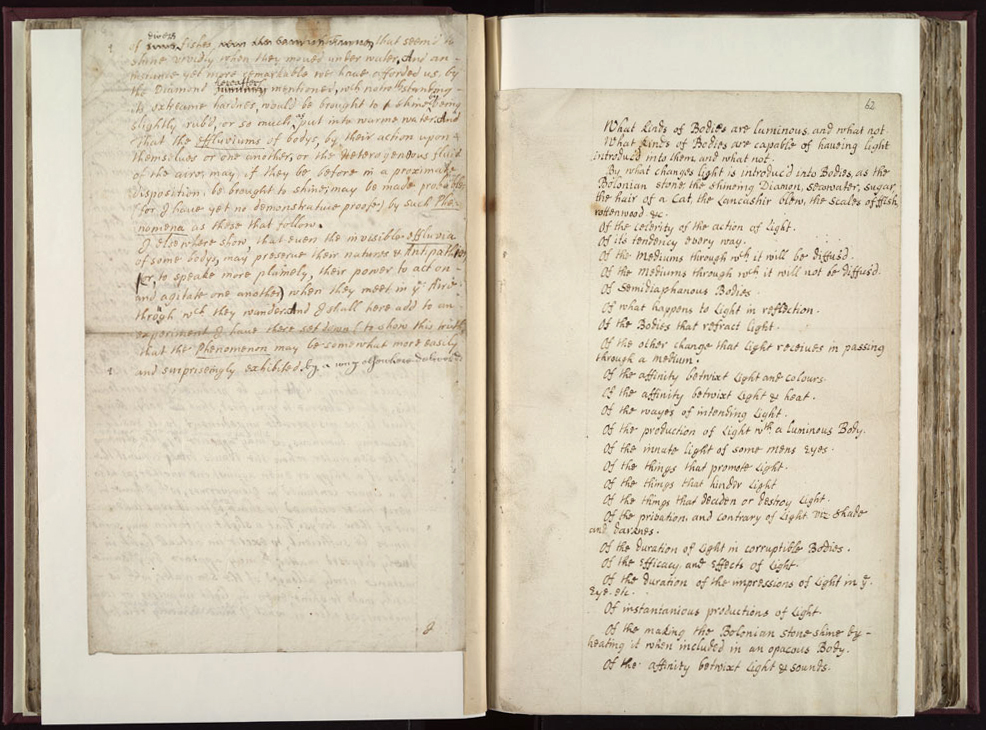 of divers fishes, that seem'd to
shine vividly when they moved under water, And an-
instance yet more remarkable we have afforded us, by
the Diamond hereafter mentioned, wch notwthstanding-
its extreame hardnes, would be brought to shine by being
slightly rub'd, or so much, as put into warme water. And
that the Effluviums of bodys, by their action upon
themselves or one another, or the Heterogeneous fluid
of the aire, may, if they be before in a proximate
disposition, be brought to shine, may be made probable
(for I have yet no demonstrative proofe) by such Phe-
nomena as those that follow.
I elsewhere show, that even the invisible effluvia
of some bodys, may preserve their natures & Antipathies
(or, to speake more plainely, their power to act on-
and agitate one another) when they meet in ye Aire-
through wch they wander. And I shall here add to an-
experiment I have there set down (to show this truth)
that the Phenomenon may be somewhat more easily
and surpriseingly exhibited, by a way elsewhere delivered
62
What kinds of Bodies are luminous, and what not
What kinds of Bodies are capable of haveing light
introduc'd into them, and what not.
By what changes light is introduc'd into Bodies, as the
Bolonian stone, the shineing Diamon, seawater, sugar,
the hair of a Cat, the Lancashir blew, the scales of fish,
rottenwood &c.
Of the celerity of the action of Light.
Of its tendency every way.
Of the Mediums through wch it will be diffus'd.
Of the Mediums through wch it will not be diffus'd.
Of Semidiaphanous Bodies
Of what happens to Light in reflection.
Of the Bodies that refract light.
Of the other change that Light receives in passing
through a medium.
Of the affinity betwixt Light and colours.
Of the affinity betwixt Light & heat.
Of the wayes of intending Light.
Of the production of Light wth a luminous Body.
Of the innate light of some mens Eyes.
Of the things that promote Light.
Of the things that hinder Light
Of the things that deaden or destroy Light.
Of the privation, and contrary of Light viz Shade
and darknes.
Of the duration of Light in corruptible Bodies.
Of the Efficacy and Effects of Light.
Of the duration of the impressions of Light in ye.
Eye. etc.
Of instantanious productions of Light.
Of the making the Bolonian stone shine by-
heating it when included in an opacous Body.
Of the affinity betwixt Light & sounds.